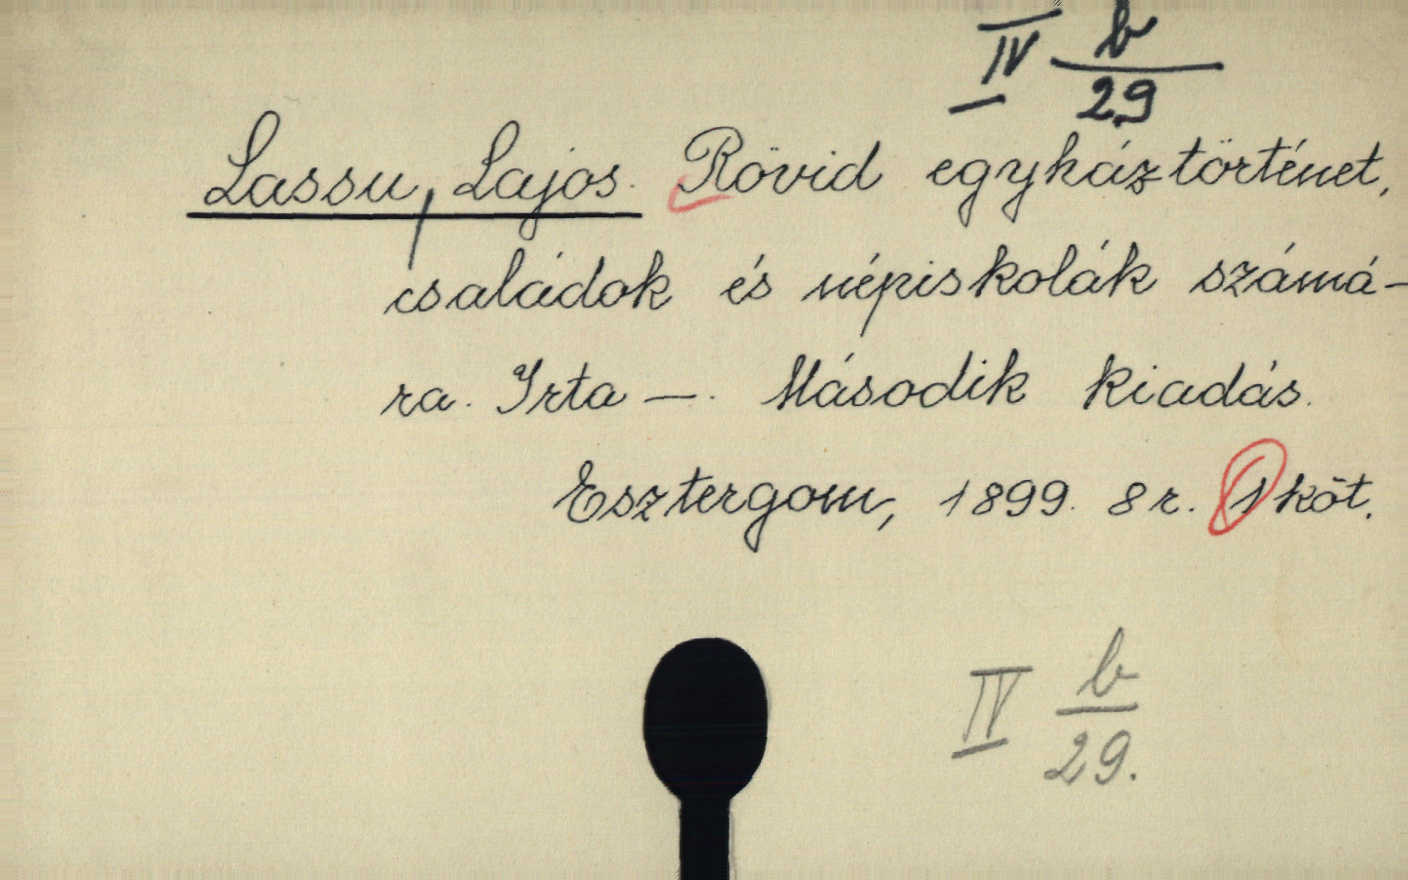 IV b
29
Lassu, Lajos. Rövid egyháztörténet,
családok és népiskolák számá-
ra. Irta —. Második kiadás.
Esztergom, 1899. 8r. 1 köt.
IV b
29.